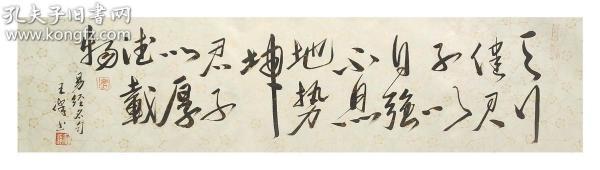 孔夫子旧书网
www.kongfz.com
天行
健君
子以
自強
不息
地势
坤
君子
以厚
德載
物
易经名句